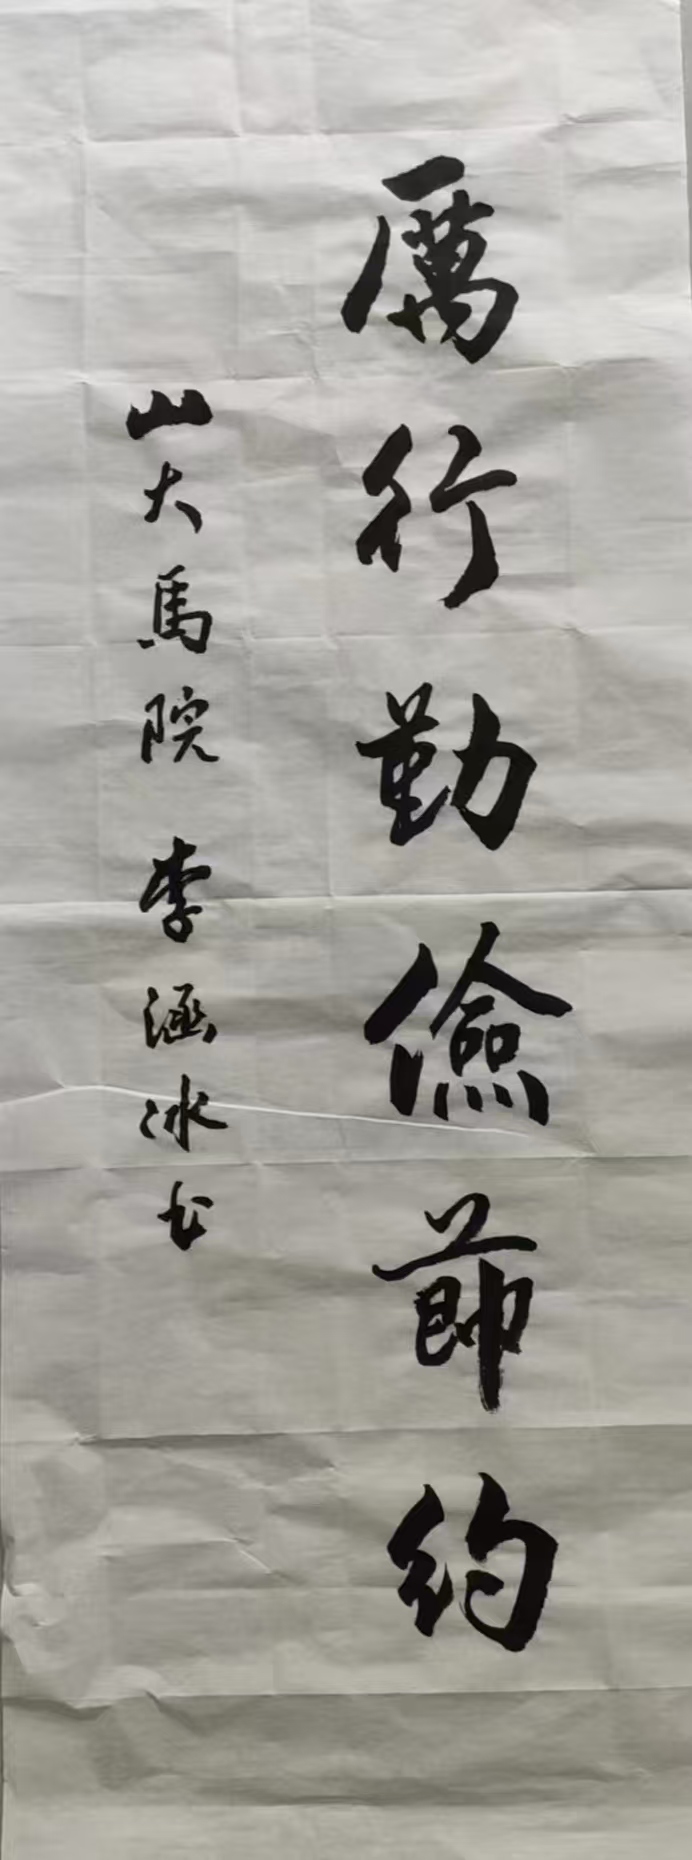 厲行勤儉節約
山大馬院 李涵冰书